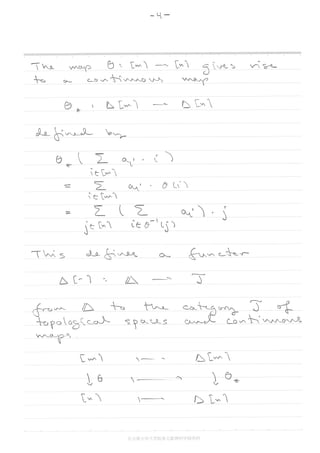 -4-
The map θ : [m] → [n] gives rise
to a continuous map
θ_* : Δ[m] → Δ[n]
defined by
θ_* ( Σ_{i∈[m]} a_i · i )
= Σ_{i∈[m]} a_i · θ(i)
= Σ_{j∈[n]} ( Σ_{i∈θ^{-1}(j)} a_i ) · j
This defines a functor
Δ[-] : Δ → J
from Δ to the category J of
topological spaces and continuous
maps.
[m] ↦ Δ[m]
↓θ ↦ ↓θ_*
[n] ↦ Δ[n]